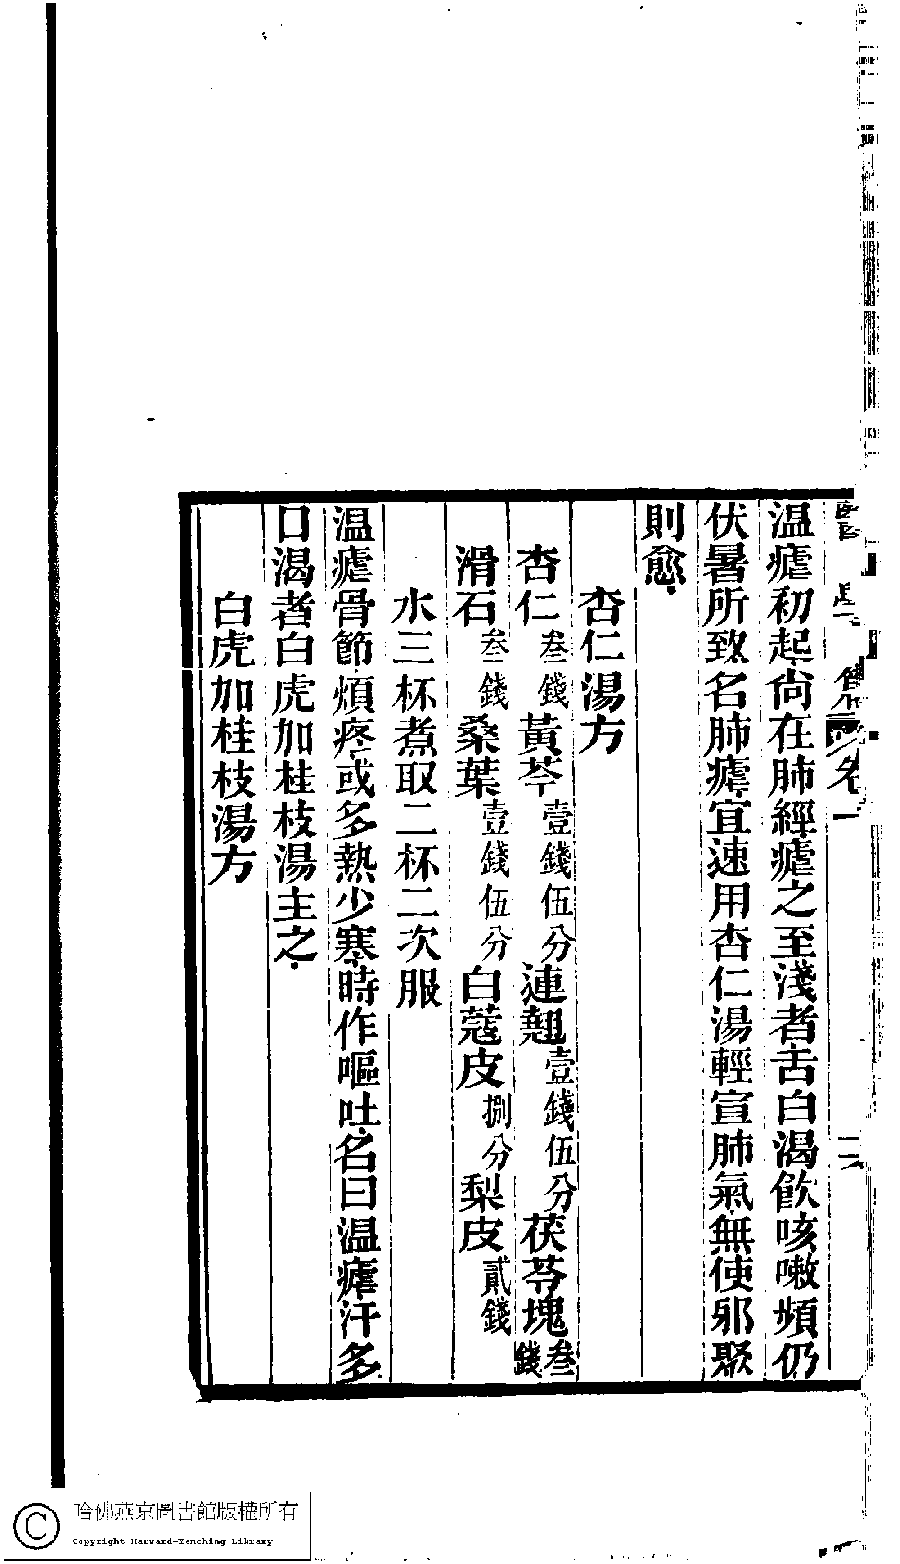 温瘧初起尙在肺經瘧之至淺者舌白渴飮咳嗽頻仍
伏暑所致名肺瘧宜速用杏仁湯輕宣肺氣無使邪聚
則愈
杏仁湯方
杏仁叁錢黃芩壹錢伍分連翹壹錢伍分茯苓塊叁錢
滑石叁錢桑葉壹錢伍分白蔻皮捌分梨皮貳錢
水三杯煮取二杯二次服
温瘧骨節煩疼或多熱少寒時作嘔吐名曰温瘧汗多
口渴者白虎加桂枝湯主之
白虎加桂枝湯方
哈佛燕京圖書館版權所有
Copyright Harvard-Yenching Library